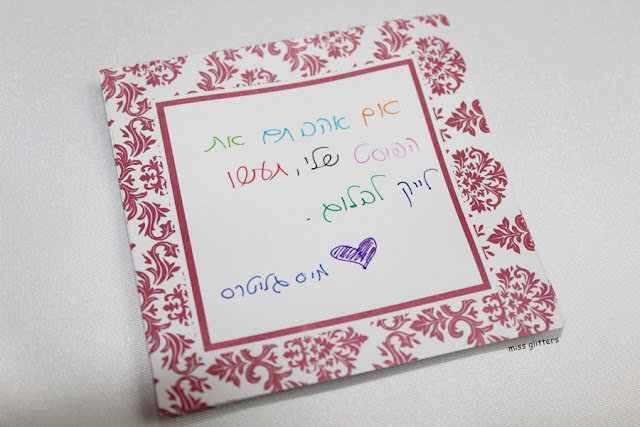 אם אהבתם את
הפוסט שלי, תעשו
לייק לבלוג.
מיס גליטרס
miss glitters